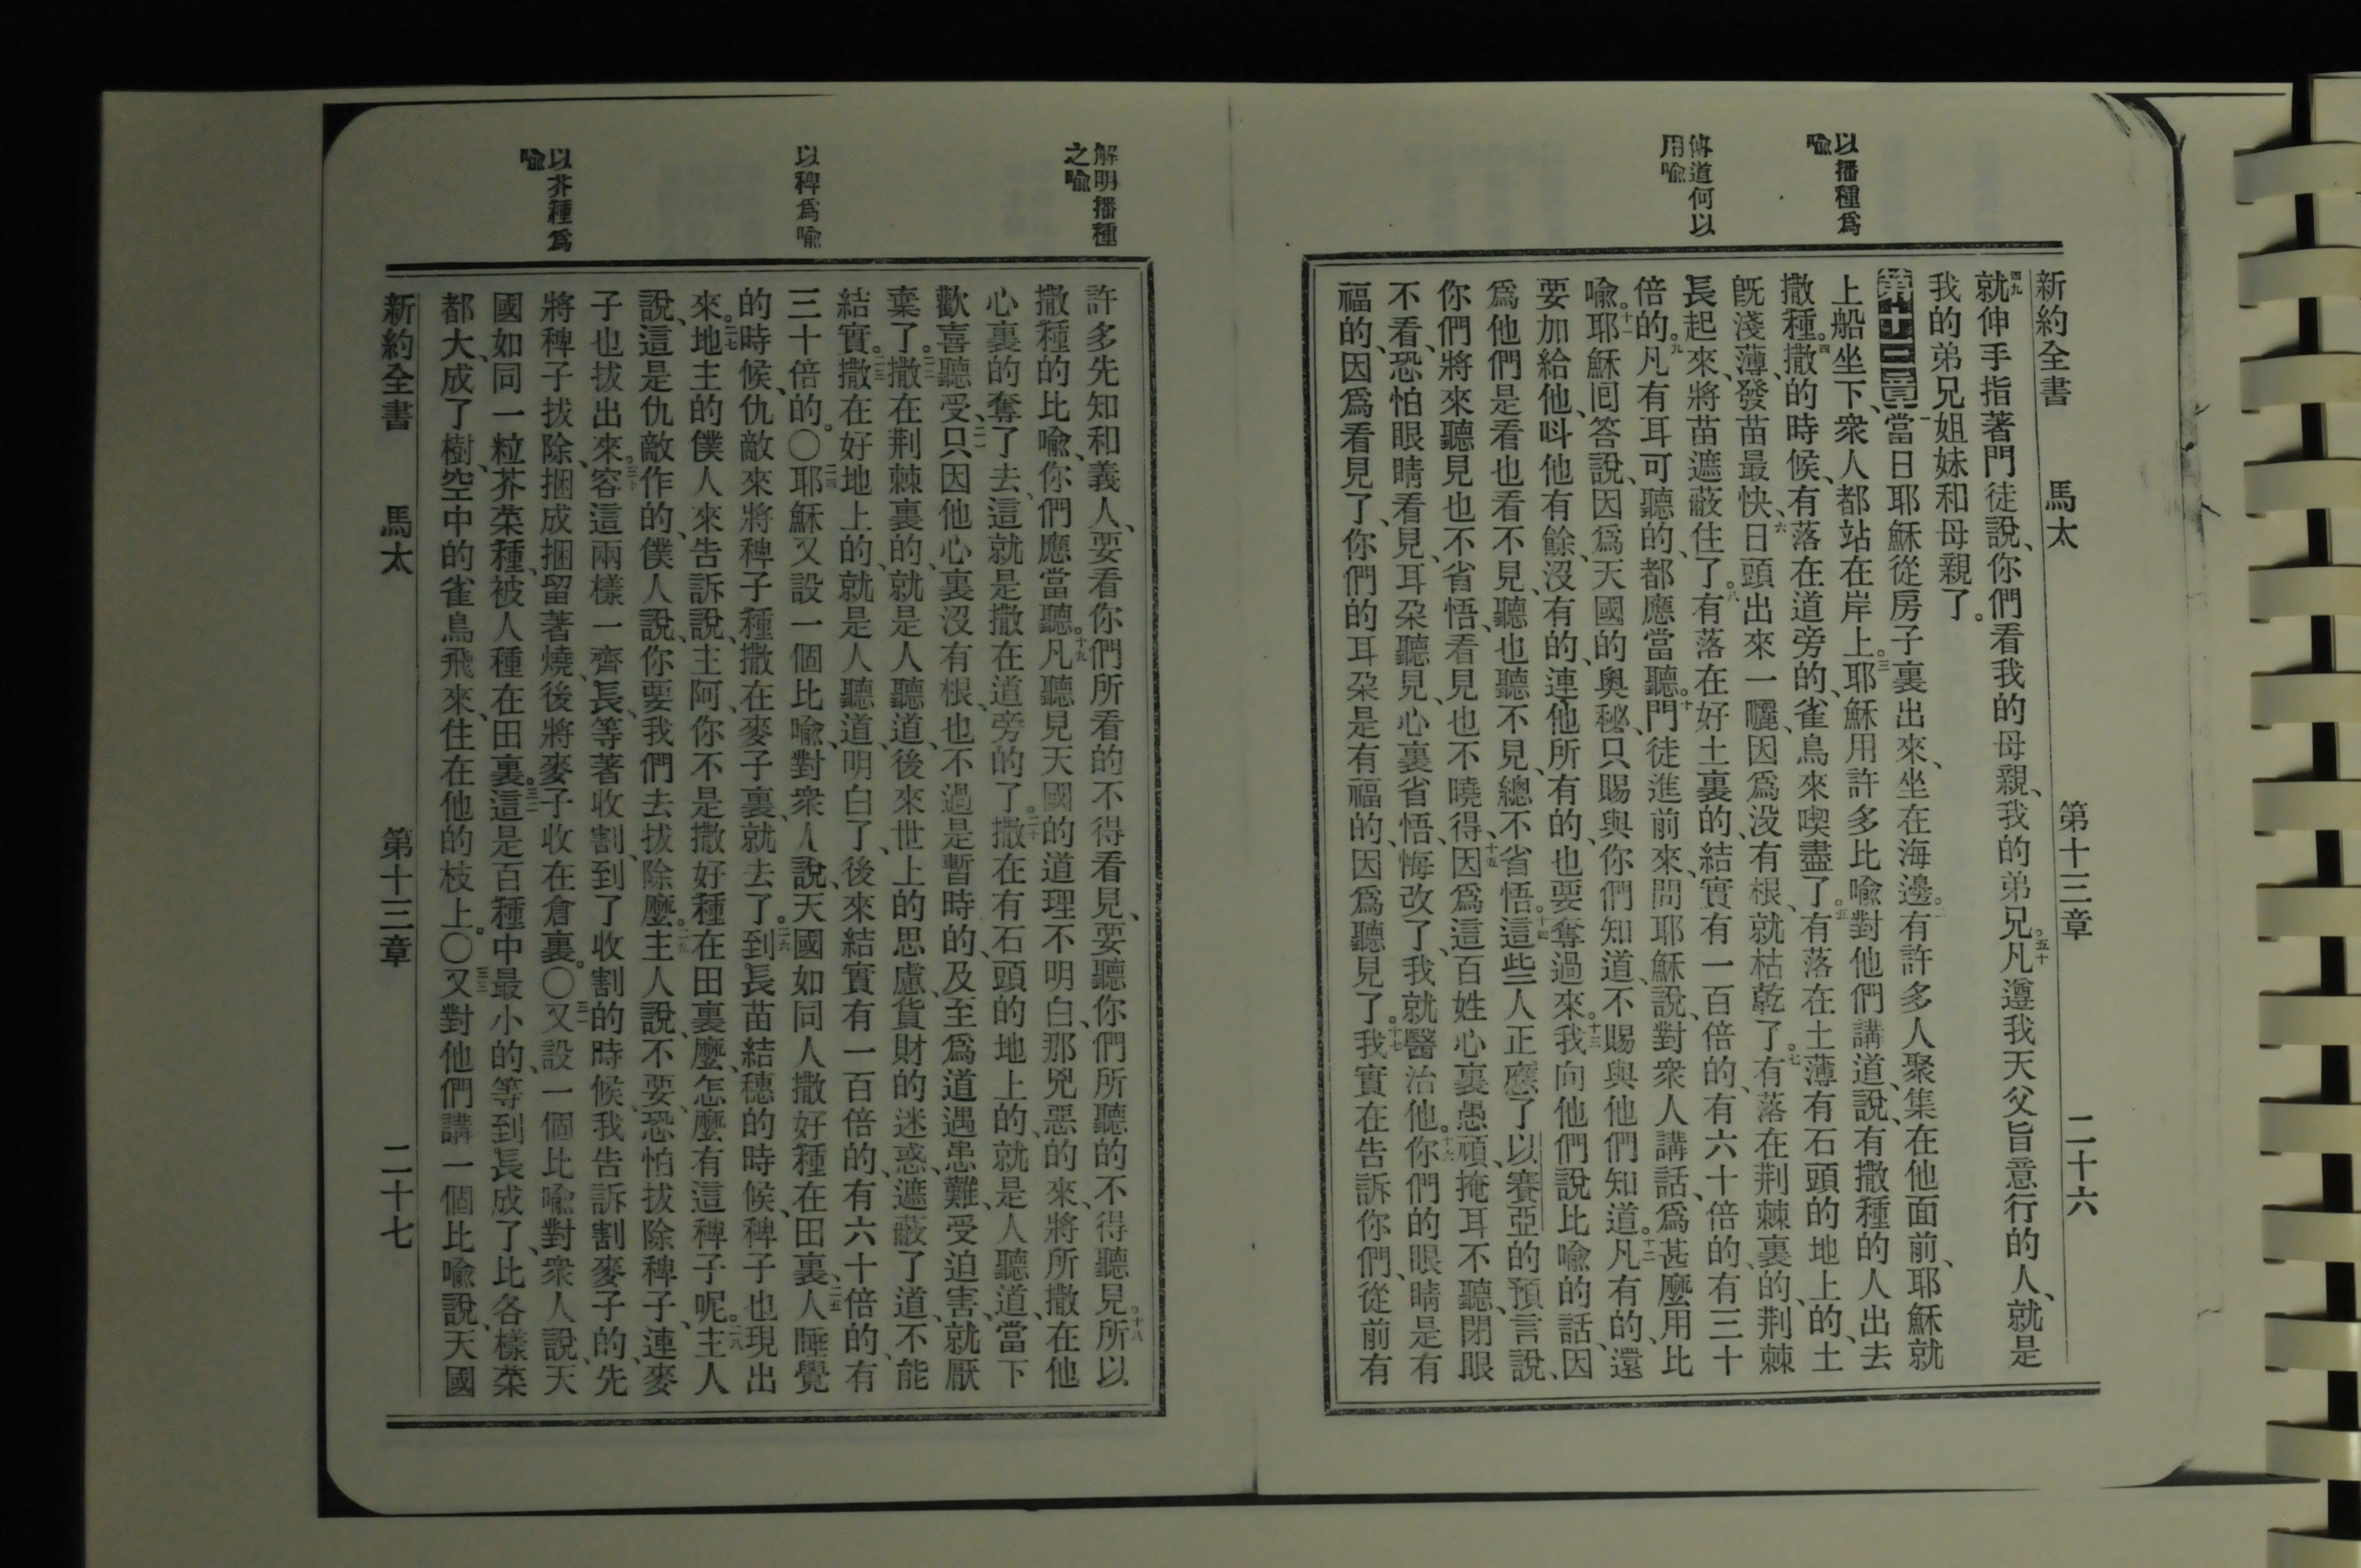 新約全書　馬太　第十三章　二十六
以播種爲
喻
傳道何以
用喻
四九就伸手指著門徒說、你們看我的母親、我的弟兄。五十凡遵我天父旨意行的人、就是
我的弟兄姐妹和母親了。
第十三章一當日耶穌從房子裏出來、坐在海邊。二有許多人聚集在他面前、耶穌就
上船坐下、衆人都站在岸上。三耶穌用許多比喻對他們講道、說、有撒種的人出去
撒種。四撒的時候、有落在道旁的、雀鳥來喫盡了。五有落在土薄有石頭的地上的、土
旣淺薄、發苗最快、六日頭出來一曬、因爲没有根、就枯乾了。七有落在荆棘裏的、荆棘
長起來、將苗遮蔽住了。八有落在好土裏的、結實有一百倍的、有六十倍的、有三十
倍的。九凡有耳可聽的、都應當聽。十門徒進前來、問耶穌說、對衆人講話、爲甚麼用比
喻。十一耶穌囘答說、因爲天國的奥秘、只賜與你們知道、不賜與他們知道。十二凡有的、還
要加給他、呌他有餘、没有的、連他所有的、也要奪過來。十三我向他們說比喻的話、因
爲他們是看也看不見、聽也聽不見、總不省悟。十四這些人正應了以賽亞的預言說、
你們將來聽見也不省悟、看見也不曉得、十五因爲這百姓心裏愚頑、掩耳不聽、閉眼
不看、恐怕眼睛看見、耳朵聽見、心裏省悟、悔改了、我就醫治他。十六你們的眼睛是有
福的、因爲看見了、你們的耳朵是有福的、因爲聽見了。十七我實在告訴你們、從前有
解明播種
之喻
以稗爲喻
以芥種爲
喻
許多先知和義人、要看你們所看的不得看見、要聽你們所聽的不得聽見。十八所以
撒種的比喻、你們應當聽。十九凡聽見天國的道理不明白、那兇惡的來、將所撒在他
心裏的奪了去、這就是撒在道旁的了。二十撒在有石頭的地上的、就是人聽道、當下
歡喜聽受、二一只因他心裏没有根、也不過是暫時的、及至爲道遇患難、受迫害、就厭
棄了。二二撒在荆棘裏的、就是人聽道、後來世上的思慮、貨財的迷惑、遮蔽了道、不能
結實。二三撒在好地上的、就是人聽道、明白了、後來結實有一百倍的、有六十倍的、有
三十倍的。〇二四耶穌又設一個比喻、對衆人說、天國如同人撒好種在田裏、二五人睡覺
的時候、仇敵來將稗子種撒在麥子裏、就去了。二六到長苗結穗的時候、稗子也現出
來。二七地主的僕人來告訴說、主阿、你不是撒好種在田裏麼、怎麼有這稗子呢。二八主人
說、這是仇敵作的、僕人說、你要我們去拔除麼。二九主人說、不要、恐怕拔除稗子、連麥
子也拔出來。三十容這兩樣一齊長、等著收割、到了收割的時候、我告訴割麥子的、先
將稗子拔除、捆成捆留著燒、後將麥子收在倉裏。〇三一又設一個比喻對衆人說、天
國如同一粒芥菜種、被人種在田裏。三二這是百種中最小的、等到長成了、比各樣菜
都大、成了樹、空中的雀鳥飛來、住在他的枝上。〇三三又對他們講一個比喻說、天國
新約全書　馬太　第十三章　二十七